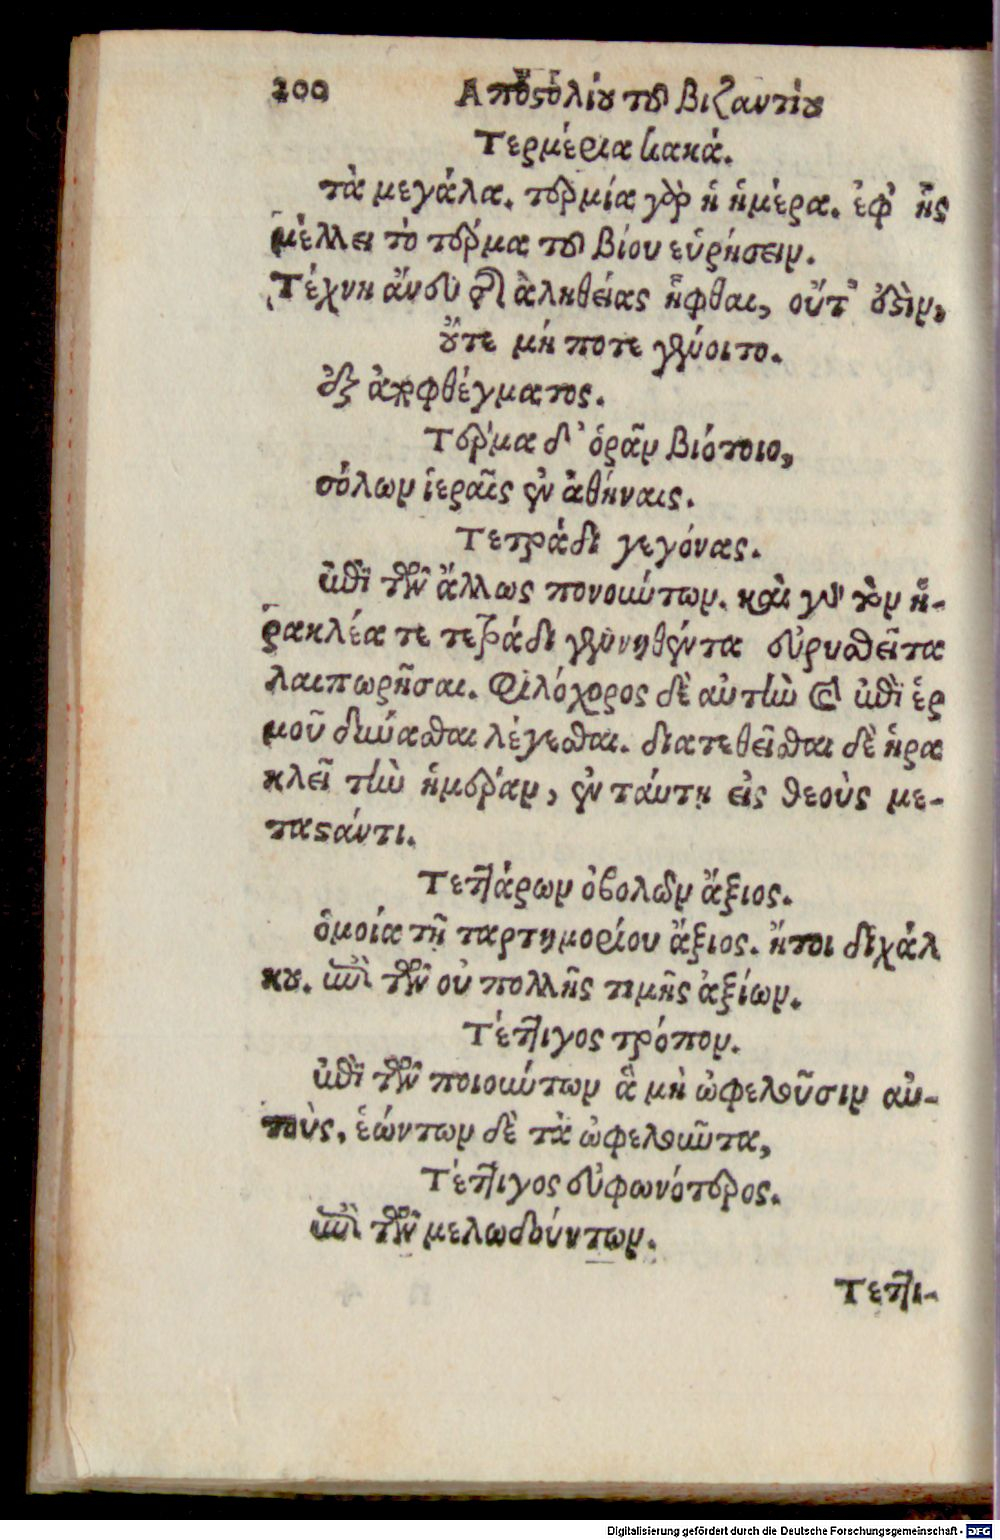 200 Αποστολίου του βιζαντίου
Τερμέρια κακά.
τὰ μεγάλα. τερμία γὰρ ἡ ἡμέρα. ἐφ' ἧς
μέλλει τὸ τέρμα του βίου εὑρήσειν.
Τέχνη ἄνευ ἀληθείας ἧφθαι, οὔτ' ἐστὶν,
οὔτε μή ποτε γένοιτο.
ἐξ ἀποφθέγματος.
Τέρμα δ' ὁρᾶν βιότοιο,
σόλων ἱεραῖς ἐν ἀθήναις.
Τετράδι γεγόνας.
ἐπὶ τῶν ἄλλως πονούντων. καὶ γὰρ τὸν ἡ-
ρακλέα τε τετράδι γεννηθέντα εὐρυσθεῖ τα
λαιπωρῆσαι. Φιλόχορος δὲ αὐτὴν καὶ ἐπὶ ἑρ
μοῦ δύνασθαι λέγεσθαι. διατεθεῖσθαι δὲ ἡρα
κλεῖ τὴν ἡμέραν, ἐν ταύτη εἰς θεοὺς με-
ταστάντι.
Τεττάρων ὀβολῶν ἄξιος.
ὁμοία τῆ ταρτημορίου ἄξιος. ἤτοι διχάλ
κου. ἐπὶ τῶν οὐ πολλῆς τιμῆς ἀξίων.
Τέττιγος τρόπον.
ἐπὶ τῶν ποιούντων ἃ μὴ ὠφελοῦσιν αὐ-
τοὺς, ἐώντων δὲ τὰ ὠφελοῦντα,
Τέττιγος εὐφωνότερος.
ἐπὶ τῶν μελωδούντων.
Τεττι-
Digitalisierung gefördert durch die Deutsche Forschungsgemeinschaft - DFG